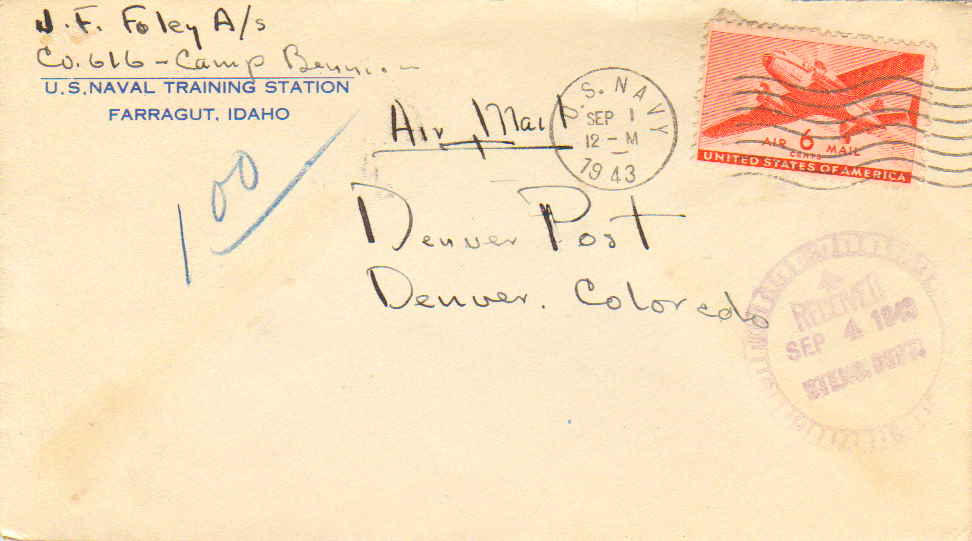 J. F. Foley A/s
Co. 616 - Camp Bennion
U.S. NAVAL TRAINING STATION
FARRAGUT, IDAHO
1 00
Air Mail
U. S. NAVY
SEP 1
12 - M
1943
AIR 6 MAIL
CENTS
UNITED STATES OF AMERICA
Denver Post
Denver. Colorado
RECEIVED
SEP 4 1943
DEPT.